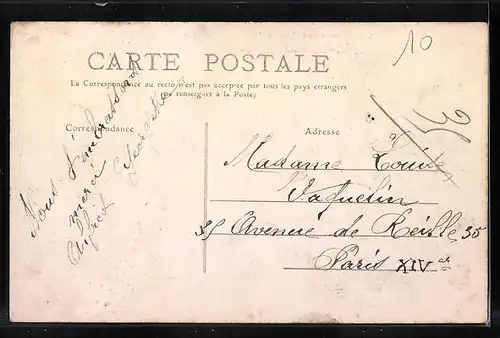 10
CARTE POSTALE
La Correspondance au recto n'est pas acceptée par tous les pays étrangers
(se renseigner à la Poste)
Correspondance
Adresse
Nous
merci
Alfred
Georgette
Madame Louise
Vaquelin
35 Avenue de Reille 35
Paris XIV